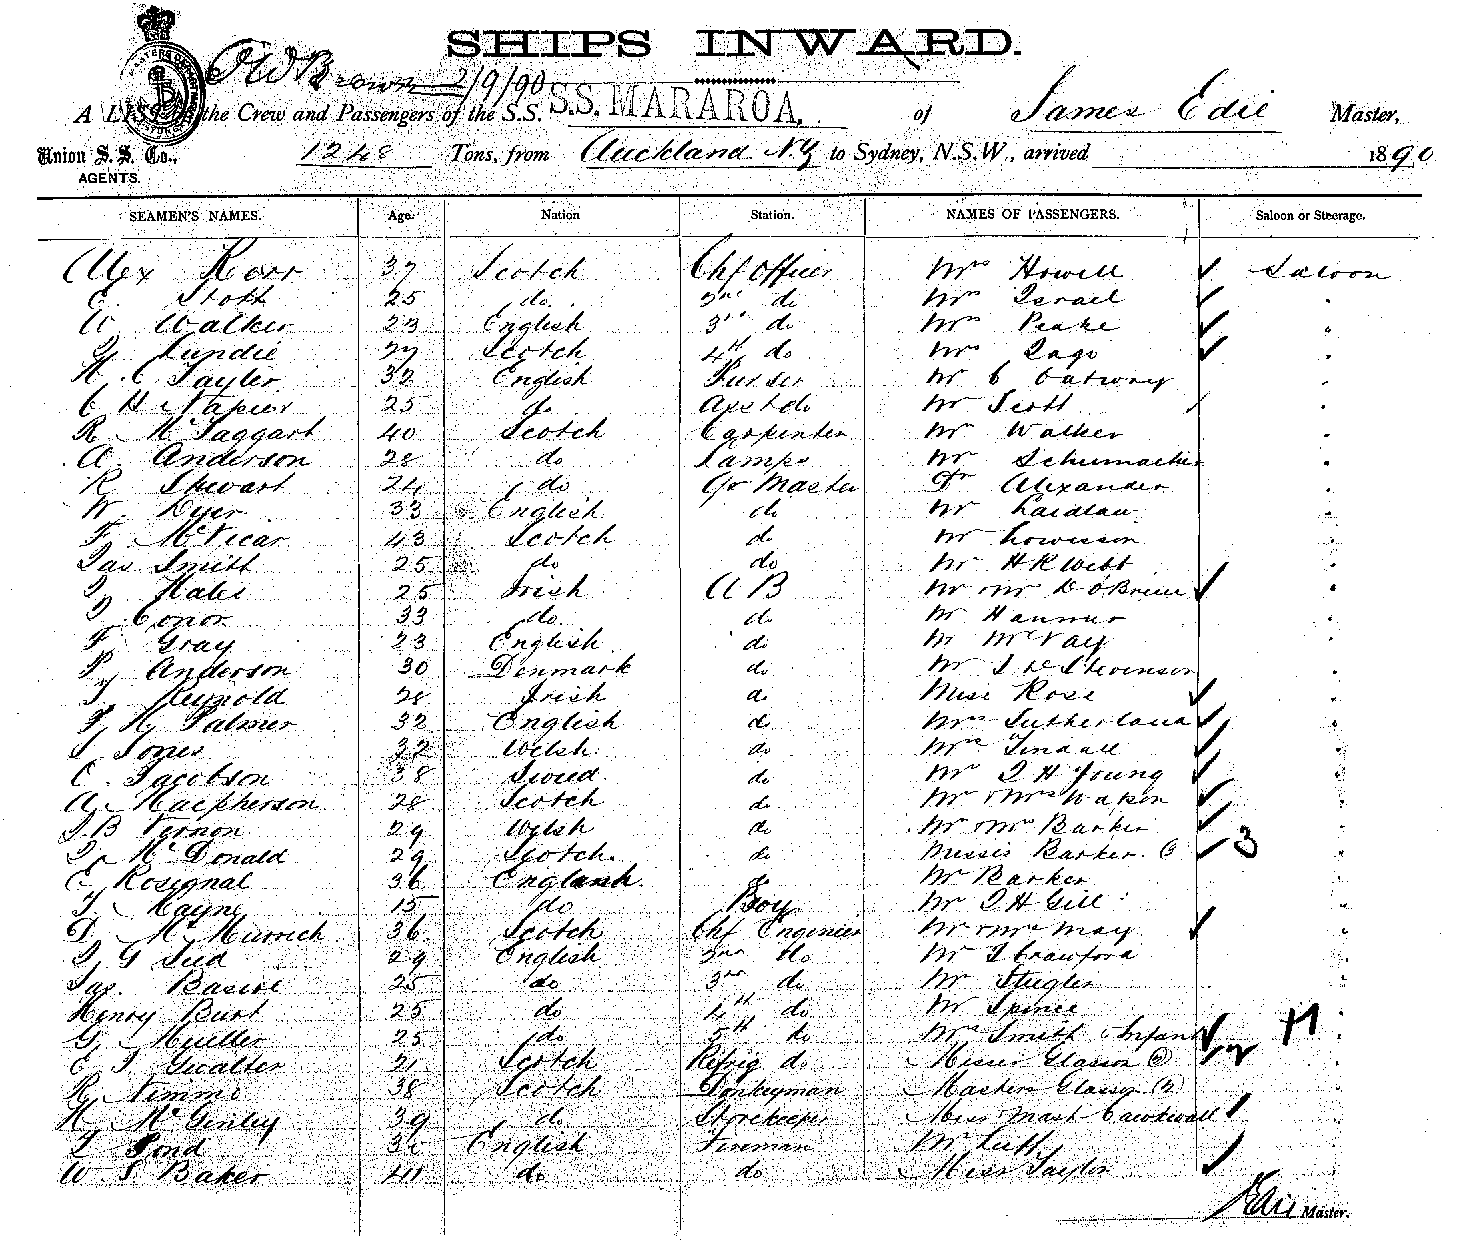 SHIPS INWARD.
2/9/90
A LIST of the Crew and Passengers of the S.S. S.S. MARAROA. of James Edie Master,
Union S. S. Co., 1248 Tons, from Auckland N.Z to Sydney, N.S.W., arrived 1890
AGENTS.
SEAMEN'S NAMES. Age. Nation Station. NAMES OF PASSENGERS. Saloon or Steerage.
Alex Kerr 37 Scotch Chf Officer Mrs Howell Saloon
C. Stott 25 do. 2nd do Mrs Israel "
W Walker 23 English 3rd do Mrs Peake "
Lundie 27 Scotch 4th do "
H. C Tayler 32 English Purser Mr C "
C H Napier 25 do Asst do Mr Scott "
R McTaggart 40 Scotch Carpenter Mr Walker "
A Anderson 28 do Lamps Mr Schumacher "
R Stewart 24 do Qr Master Dr Alexander "
W. Dyer 33 English do Mr Laidlaw "
F McVicar 43 Scotch do Mr "
Jas Smith 25 do do Mr H R Webb "
Hales 25 Irish A B Mr & Mrs D O'Brien "
J Conor 33 do. do Mr "
F. Gray 23 English do Mr "
P. Anderson 30 Denmark do Mr Stevenson "
Reynold 28 Irish do Miss Rose "
Palmer 32 English do Mrs Sutherland "
Jones 32 Welsh do Mrs Tindall "
C. Jacobson 38 Swed. do Mr J H Young "
A Macpherson 28 Scotch do Mr & Mrs "
J. B Vernon 29 Welsh do Mr & Mrs Barker "
J McDonald 29 Scotch. do Misses Barker (3) 3 "
E Rosignal 36 English do Mr Barker "
T Kayne 15 do Boy Mr J H Gill "
D McMurrich 36 Scotch Chf Engineer Mr & Mrs May "
J G 29 English 2nd do Mr J Crawford "
Jas. Basire 25 do 3rd do Mr "
Henry Burt 25 do 4th do Mr Spence "
G Mueller 25 do 5th do Mrs Smith & Infant
E J Gwalter 21 Scotch Refrig do Misses Glasson (2) 2
R Nimmo 38 Scotch Donkeyman Masters (2)
H McGinley 39 do Storekeeper Miss
Pond English Fireman Mr
W S Baker do do Miss Taylor
J Edie Master.